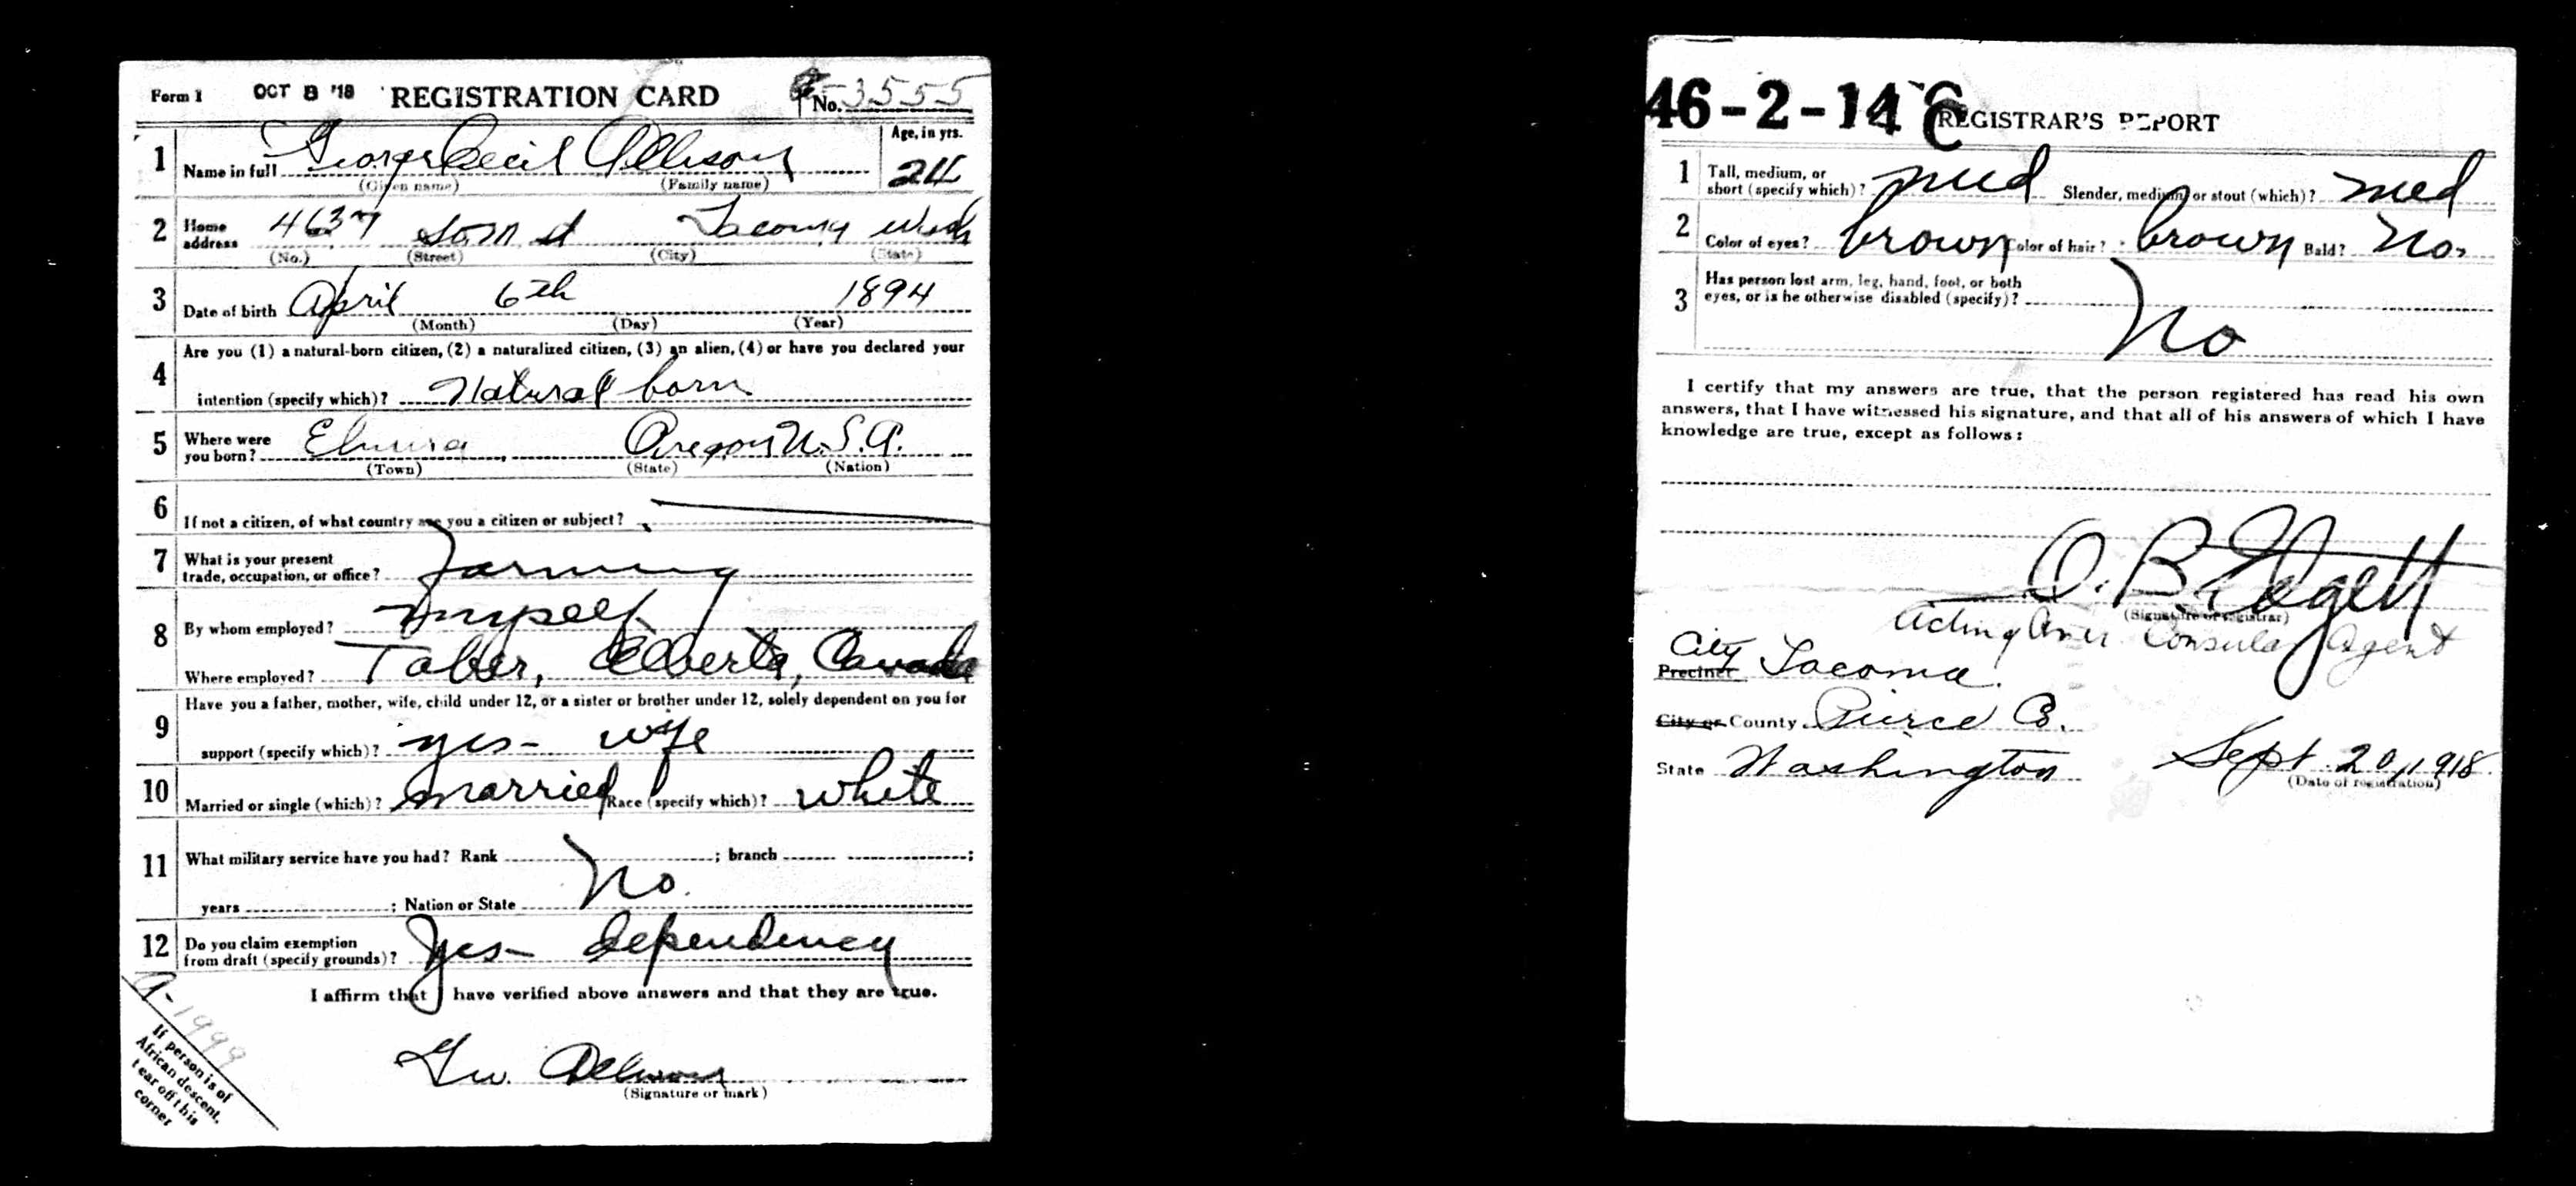 Form 1 OCT 8 '18 REGISTRATION CARD No. 3555
1 Name in full George Cecil Allison Age, in yrs. 24
(Given name) (Family name)
2 Home address 4637 So. M st Tacoma Wash
(No.) (Street) (City) (State)
3 Date of birth April 6th 1894
(Month) (Day) (Year)
4 Are you (1) a natural-born citizen, (2) a naturalized citizen, (3) an alien, (4) or have you declared your
intention (specify which)? Natural born
5 Where were you born? Elmira, Oregon U.S.A.
(Town) (State) (Nation)
6 If not a citizen, of what country are you a citizen or subject?
7 What is your present trade, occupation, or office? Farming
8 By whom employed? Myself
Where employed? Taber, Alberta, Canada
9 Have you a father, mother, wife, child under 12, or a sister or brother under 12, solely dependent on you for
support (specify which)? yes - wife
10 Married or single (which)? married Race (specify which)? white
11 What military service have you had? Rank ; branch ;
years ; Nation or State No
12 Do you claim exemption from draft (specify grounds)? Yes - dependency
I affirm that I have verified above answers and that they are true.
Geo. Allison
(Signature or mark)
A-1999
If person is of
African descent,
tear off this
corner
46-2-14 C REGISTRAR'S REPORT
1 Tall, medium, or short (specify which)? med Slender, medium, or stout (which)? med
2 Color of eyes? brown Color of hair? brown Bald? No
3 Has person lost arm, leg, hand, foot, or both
eyes, or is he otherwise disabled (specify)?
No
I certify that my answers are true, that the person registered has read his own
answers, that I have witnessed his signature, and that all of his answers of which I have
knowledge are true, except as follows:
O. B. Edgett
(Signature of registrar)
Acting Amer. Consular Agent
City
Precinct Tacoma.
City or County Pierce Co.
State Washington Sept. 20, 1918
(Date of registration)